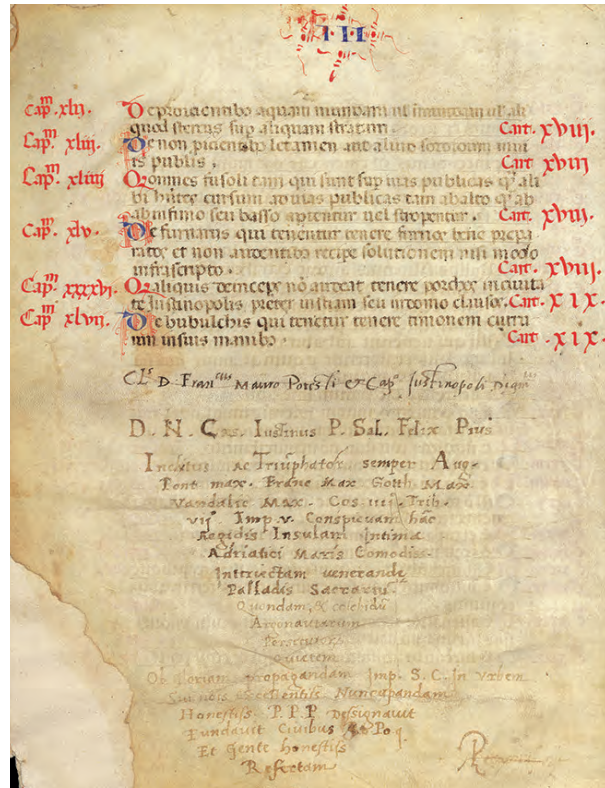 ·III·
Cap.m xlii. De proicientibo aquam inmundam ul
quod stercus sup aliquam stratam. Cart. xviii.
Cap.m xliii. De non piciendo letamen aut aliud
is publis. Cart. xviii
Cap.m xliiii Q omnes fusoli tam qui sunt sup uias publicas
bi hntes cursum ad uias publicas tam abalto
abinfimo seu basso aptentur uel stropentur. Cart. xviii.
Cap.m xlv. De furnariis qui tenentur tenere furnos bene prepa
ratos et non audentibo recipe solutionem nisi modo
infrascripto. Cart. xviii.
Cap.m xxxxvi. Q aliquis deincepe nō audeat tenere porchos
te Iustinopolis preter in clauso. Cart. xix.
Cap.m xlvii. De bubulchis qui tenetur tenere timonem curru
um insuis manibo. Cart. xix.
D. Fran Mauro Potesti et Cap.o Justinopoli
D. N. Caes. Iustinus P. Sal. Felix Pius
Inclitus ac Triūphator semper Aug.
Pont max. Franc Max Gotth Max
Vandalic Max. Cos iiij. Trib.
vij Imp. v. Conspicuam hāc
Aegidis Insulam Intima
Adriatici Maris Comodiss.
Interiectam venerandę
Palladis Sacrariū
Quondam, & colchidū
Argonautarum
Persecutor
Quietem
Ob gloriam propagandam Imp. S. C. In Vrbem
Sui nois excellentiss Nuncapandam
Honestiss. P. P. P Dessignavit
Fundavit Civibus Po q.
Et Gente honestiss
Refectam